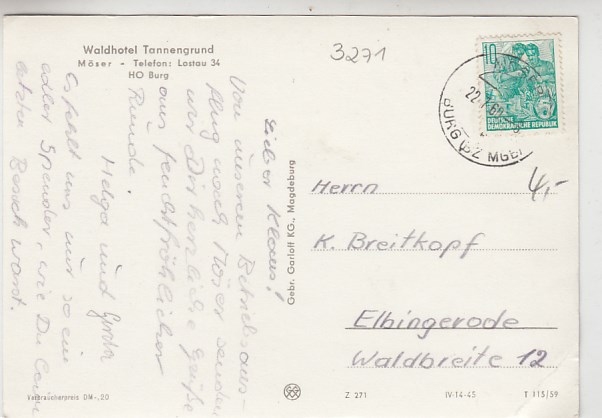 Waldhotel Tannengrund
Möser - Telefon: Lostau 34
HO Burg
3271
Lieber Klaus!
Von unserem Betriebsaus-
flug nach Möser senden
wir Dir herzliche Grüße
aus feuchtfröhlicher
Runde.
Helga und
Es fehlt uns nur so ein
edler Spender, wie Du beim
letzten Besuch warst.
Gebr. Garloff KG., Magdeburg
10
DEUTSCHE
DEMOKRATISCHE REPUBLIK
BURG (BZ MGB)
4,-
Herrn
K. Breitkopf
Elbingerode
Waldbreite 12
Verbraucherpreis DM -,20
Z 271
IV-14-45
T 115/59